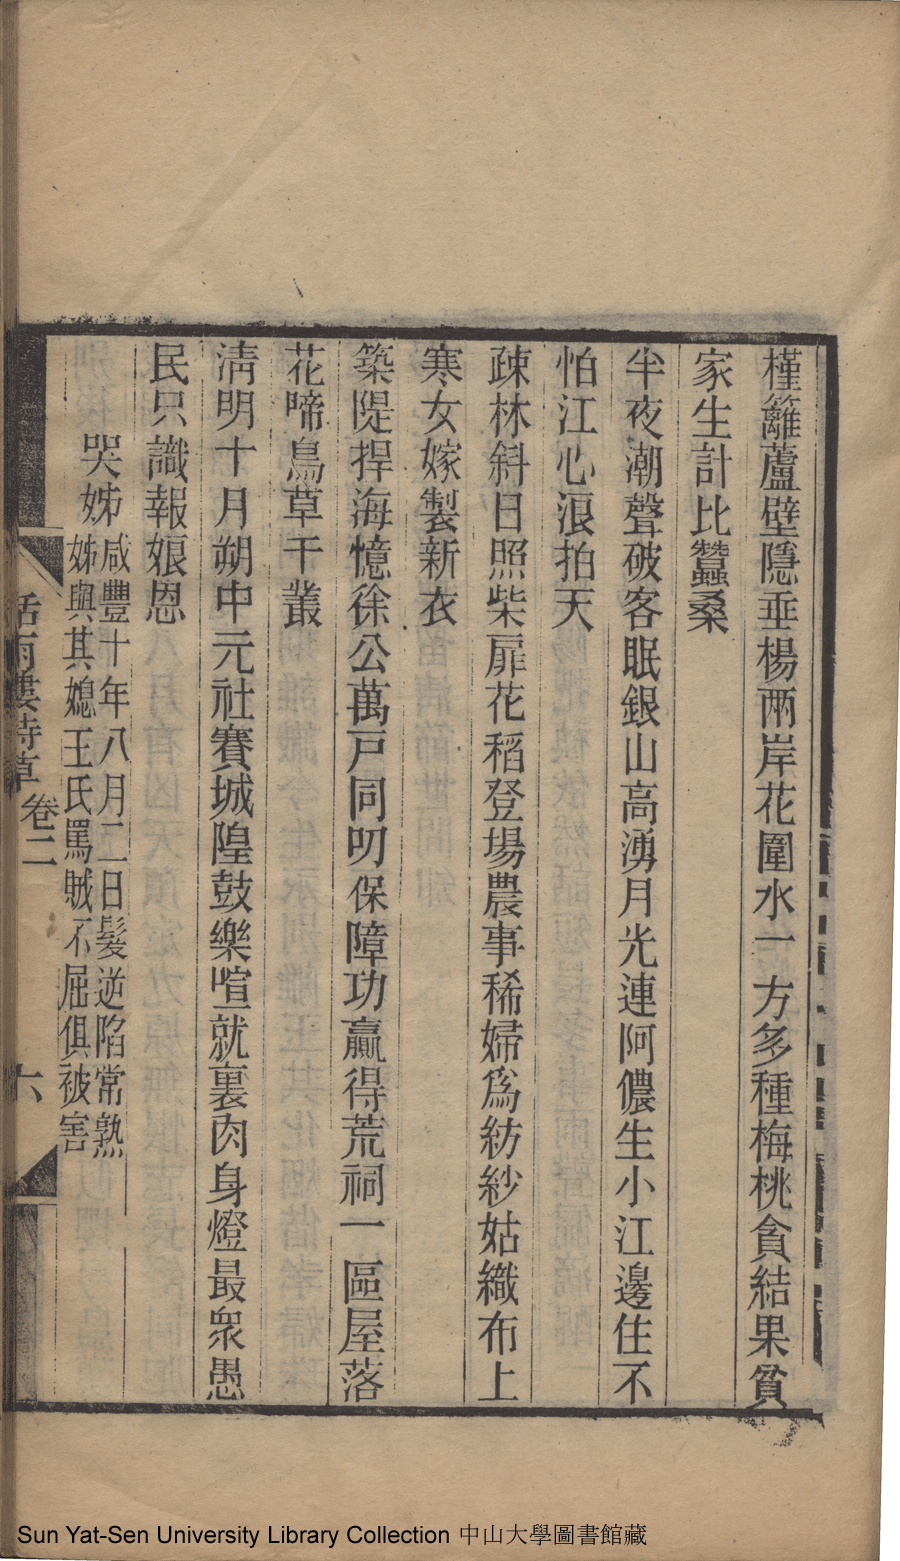 槿籬蘆壁隱垂楊兩岸花圍水一方多種梅桃貪結果貧
家生計比蠶桑
半夜潮聲破客眠銀山高湧月光連阿儂生小江邊住不
怕江心浪拍天
疎林斜日照柴扉花稻登場農事稀婦爲紡紗姑織布上
寒女嫁製新衣
築隄捍海憶徐公萬戸同叨保障功贏得荒祠一區屋落
花啼鳥草干叢
淸明十月朔中元社賽城隍鼓樂喧就裏肉身燈最衆愚
民只識報娘恩
哭姊
咸豐十年八月二日髮逆陷常熟
姊與其媳王氏罵賊不屈俱被害
話雨樓詩草
卷二
六
Sun Yat-Sen University Library Collection 中山大學圖書館藏